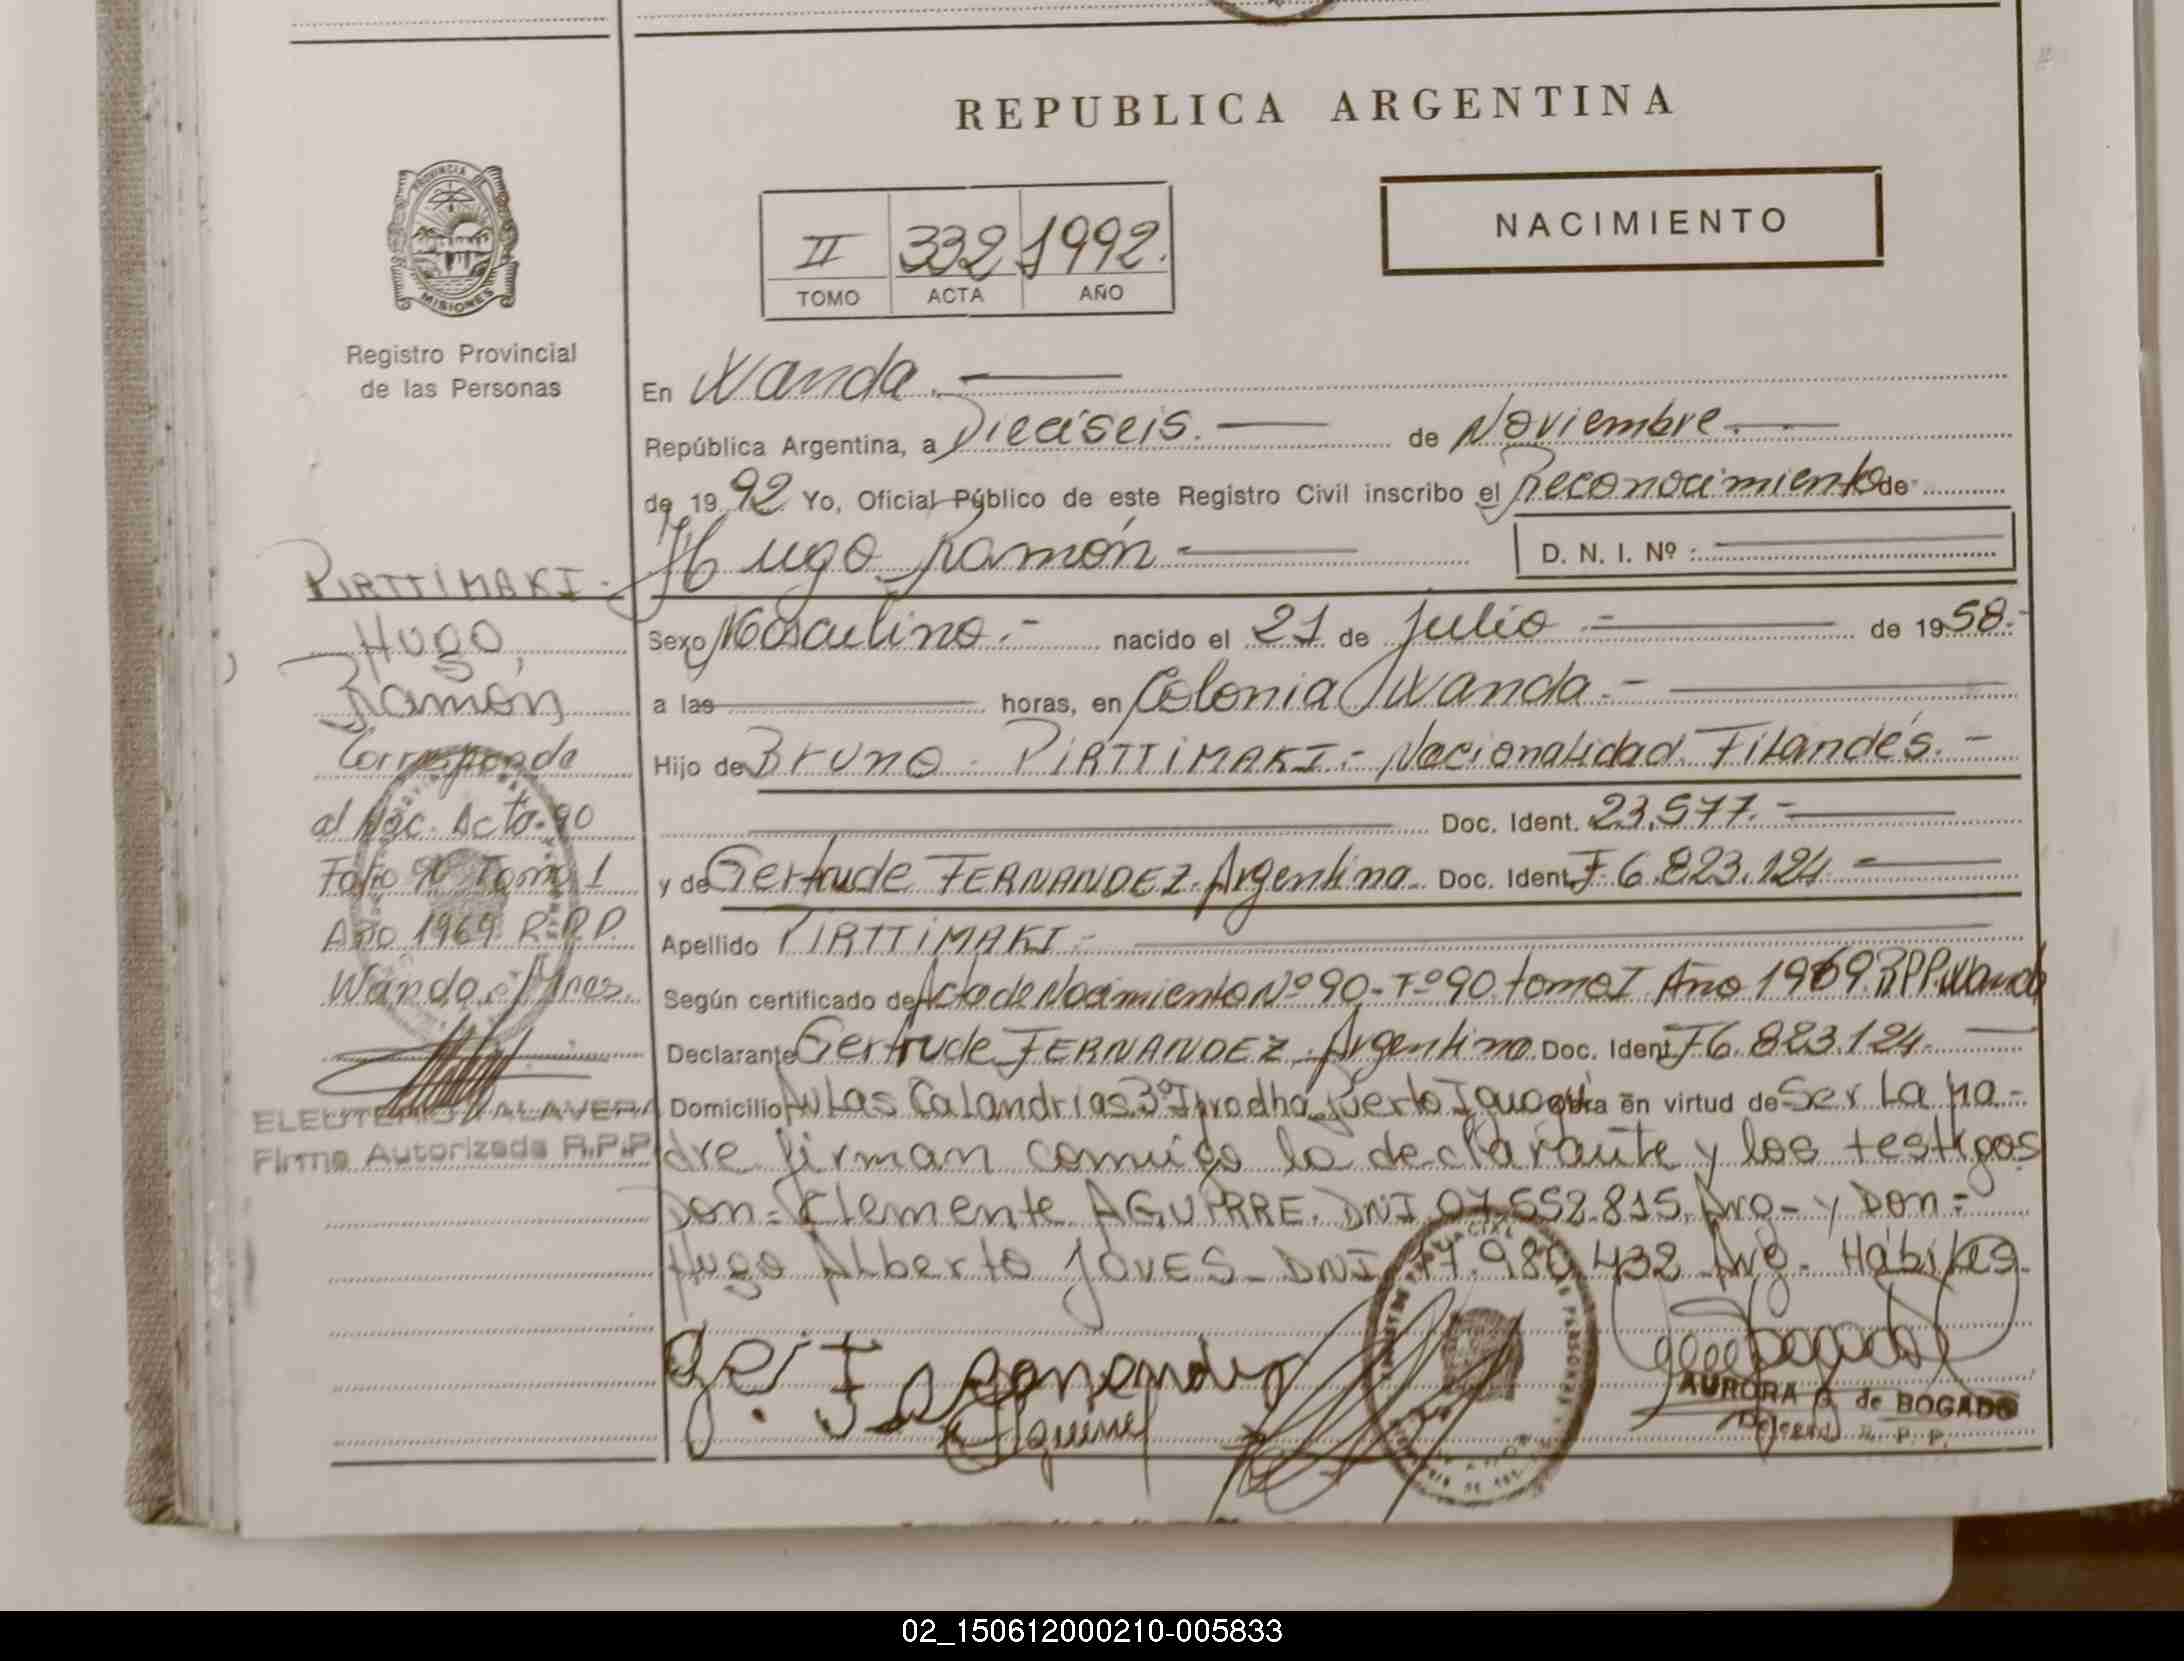 REPUBLICA ARGENTINA
NACIMIENTO
II 332 1992.
TOMO ACTA AÑO
PROVINCIA DE
MISIONES
Registro Provincial
de las Personas
En Wanda.
República Argentina, a Dieciseis. de Noviembre.
de 1992. Yo, Oficial Público de este Registro Civil inscribo el Reconocimiento de
Hugo Ramón
D. N. I. Nº :
Sexo Masculino.- nacido el 21 de Julio de 1958.-
a las horas, en Colonia Wanda.-
Hijo de Bruno PIRTTIMAKI.- Nacionalidad Filandés.-
Doc. Ident. 23.577.-
y de Gertrude FERNANDEZ. Argentina. Doc. Ident. F. 6.823.124
Apellido PIRTTIMAKI.-
Según certificado de Acta de Nacimiento Nº 90- Fº 90 tomo I Año 1969. R.P.P. Wanda
Declarante Gertrude FERNANDEZ. Argentina. Doc. Ident. F6.823.124.
Domicilio Las Calandrias Puerto Iguazú obra en virtud de Ser La Ma-
dre firman comigo la declarante y los testigos
Don= Clemente AGUIRRE. DNI 07.552.815. Arg- y Don=
Hugo Alberto JOVES- DNI 17.980.432 Arg- Hábiles.
PIRTTIMAKI.-
Hugo,
Ramón
Corresponde
al Nac. Acta. 90
Folio 90 Tomo 1
Año 1969 R.P.P.
Wanda. Mnes.
ELEUTERIO TALAVERA
Firma Autorizada R.P.P
AURORA G. de BOGADO
Delegada R. P. P.
02_150612000210-005833